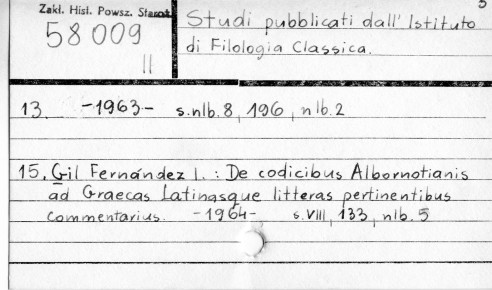 Zakł. Hist. Powsz. Staroż.
5
58009
II
Studi pubblicati dall'Istituto
di Filologia Classica.
13. -1963- s.nlb.8, 196, nlb.2
15. Gil Fernández l. : De codicibus Albornotianis
ad Graecas Latinasque litteras pertinentibus
commentarius. -1964- s.VIII, 133, nlb.5